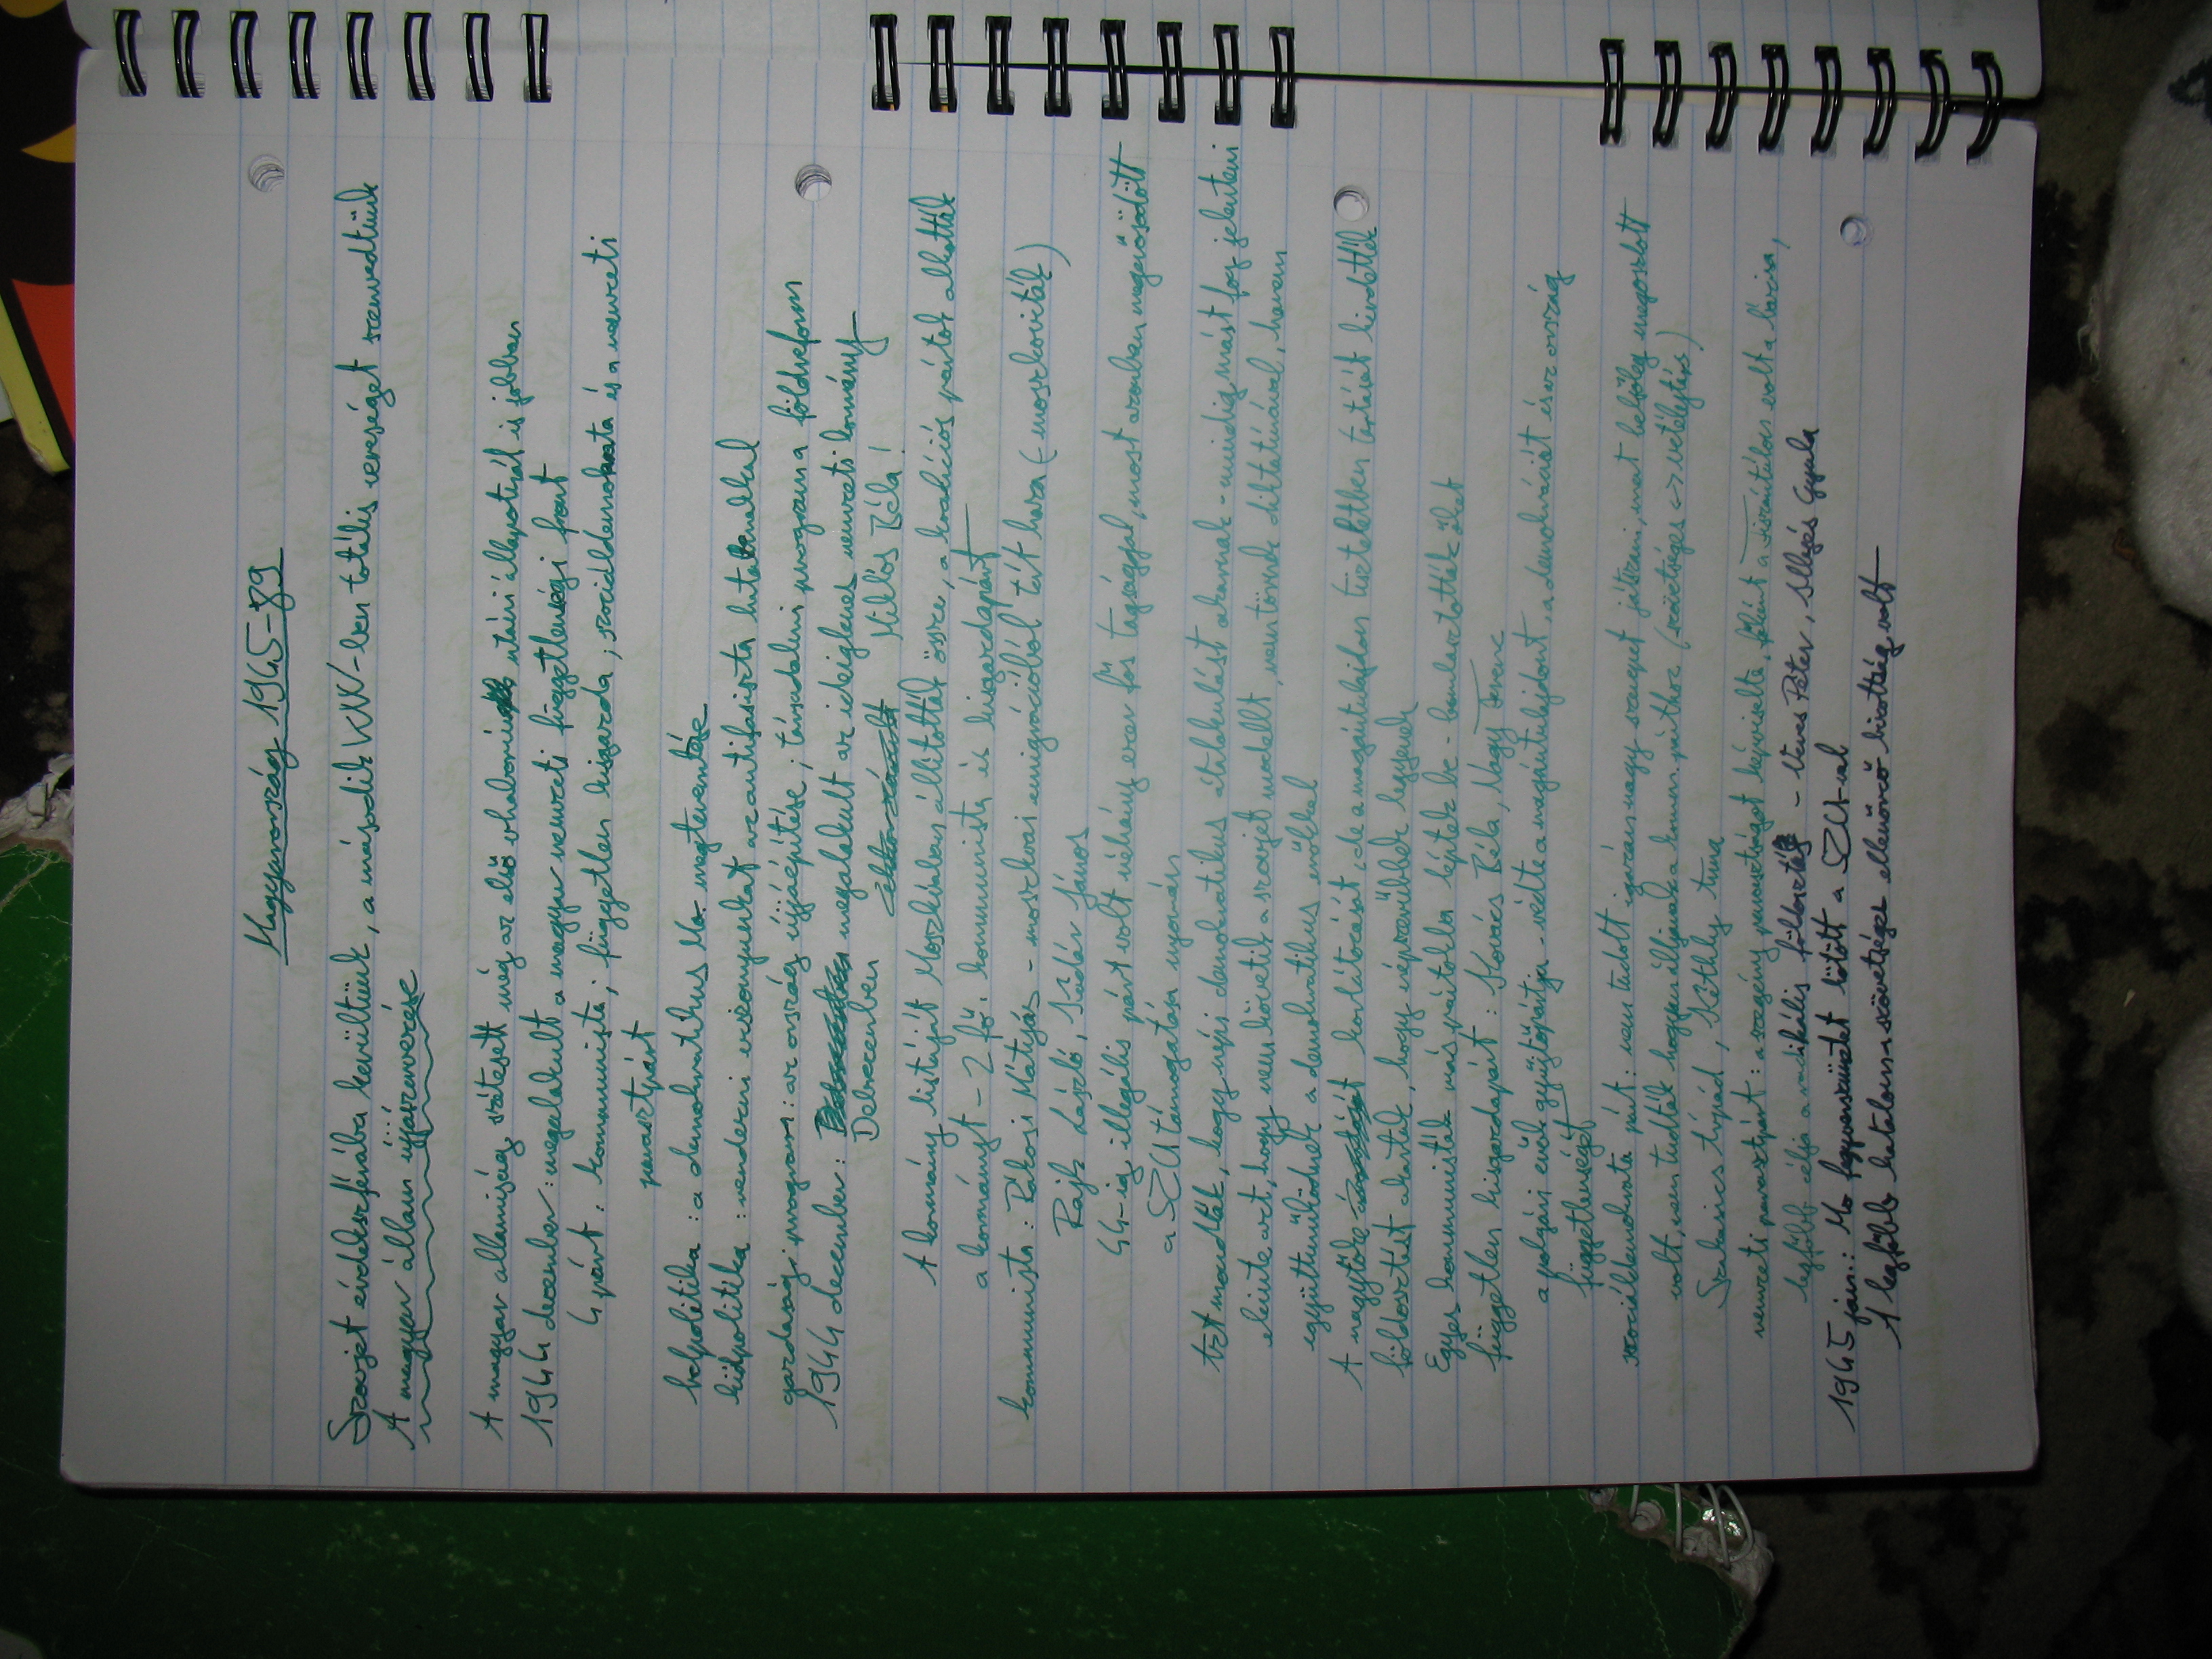 Magyarország 1945-89
Szovjet érdekszférába kerültünk, a második VH-ben totális vereséget szenvedtünk
A magyar állam újjászervezése
A magyar államiság szétesett még az első vh utáni állapotnál is jobban
1944 december: megalakult a magyar nemzeti függetlenségi front
4 párt: kommunista; független kisgazda; szociáldemokrata és a nemzeti
parasztpárt
belpolitika: a demokratikus Mo. megteremtése
külpolitika: rendezni viszonyunkat az antifasiszta hatalmakkal
gazdasági program: az ország újjáépítése; társadalmi program a földreform
1944 december: megalakult az ideiglenes nemzeti kormány
Debrecenben Miklós Béla!
A kormány listáját Moszkvában állították össze, a koalíciós pártok alkották
a kormányt - 2 fő: kommunista és kisgazdapárt
kommunista: Rákosi Mátyás - moszkvai emigrációból tért haza (- moszkoviták)
Rajk László, Kádár János
44-ig illegális párt volt néhány ezer fős tagsággal, most azonban megerősödött
a SZU támogatása nyomán
Azt mondták, hogy népi demokratikus átalakulást akarnak - mindig mást fog jelenteni
eleinte azt, hogy nem követik a szovjet modellt, nem törnek diktatúrával, hanem
együttműködnek a demokratikus erőkkel
A nagytőke korlátozását, de a magántulajdon tiszteletben tartását hirdették
földosztást akartak, hogy népszerűbbek legyenek
Egyes kommunisták más pártokba léptek be - bomlasztották őket
független kisgazdapárt: Kovács Béla, Nagy Ferenc
a polgári erők gyűjtőpártja - védte a magántulajdont, a demokráciát és az ország
függetlenségét
szociáldemokrata párt: nem tudott igazán nagy szerepet játszani, mert belsőleg megosztott
volt, nem tudták hogyan álljanak a komm. párthoz (szövetséges <-> vetélytárs)
Szakasics Árpád, Kéthly Anna
nemzeti parasztpárt: a szegény parasztságot képviselte, főként a Tiszántúlon volt a bázisa,
legfőbb célja a radikális földosztás - Veres Péter, Illyés Gyula
1945 jan.: Mo fegyverszünetet kötött a SZU-val
A legfőbb hatalom a szövetséges ellenőrző bizottság volt